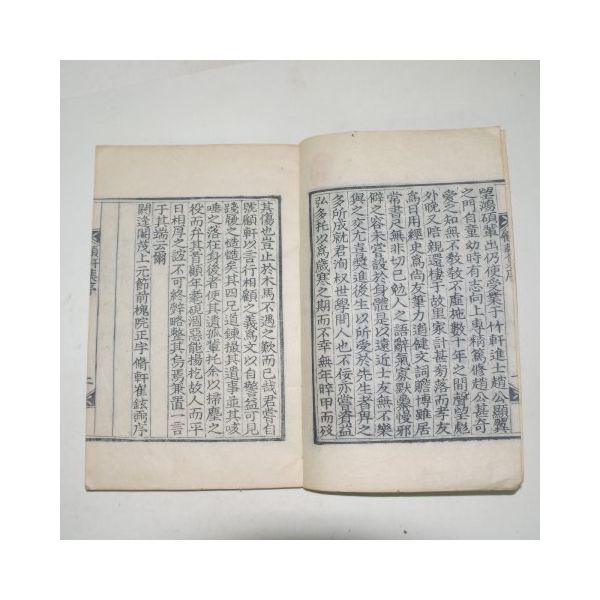 望鴻碩輩出仍使受業于竹軒進士趙公顯翼
之門自童幼時有志向上專精篤修趙公甚奇
愛之知無不敎敎無不虛施數十年之間聲望彪
外晚又暗親還棲于故里家計甚匊落而孝友
爲日用經史爲尙友筆力遒健文詞贍博雖居
常書尺無非切己勉人之語辭氣寡默褻慢邪
僻之容未嘗設於身體是以遠近士友無不樂
與之交尤喜奬進後生以所受於先生者畀之
多所成就君洵叔世學問人也不佞亦嘗眷益
弘多托以爲歲寒之期而不幸無年晬甲而歿
其傷也豈止於木馬不遇之歎而已哉君嘗自
號顧軒以言行相顧之義爲文以自警益可見
踐履之慥慥矣其四兄道鍊掇其遺事並其咳
唾之落在身後者使其遺孤輩托余以掃塵之
役而弁其首顧年老硯涸惡能揚扢故人而平
日相厚之誼不可終辭略整其烏焉兼置一言
于其端云爾
閼逢閹茂上元節前槐院正字脩軒崔鉉弼序
顧軒集序